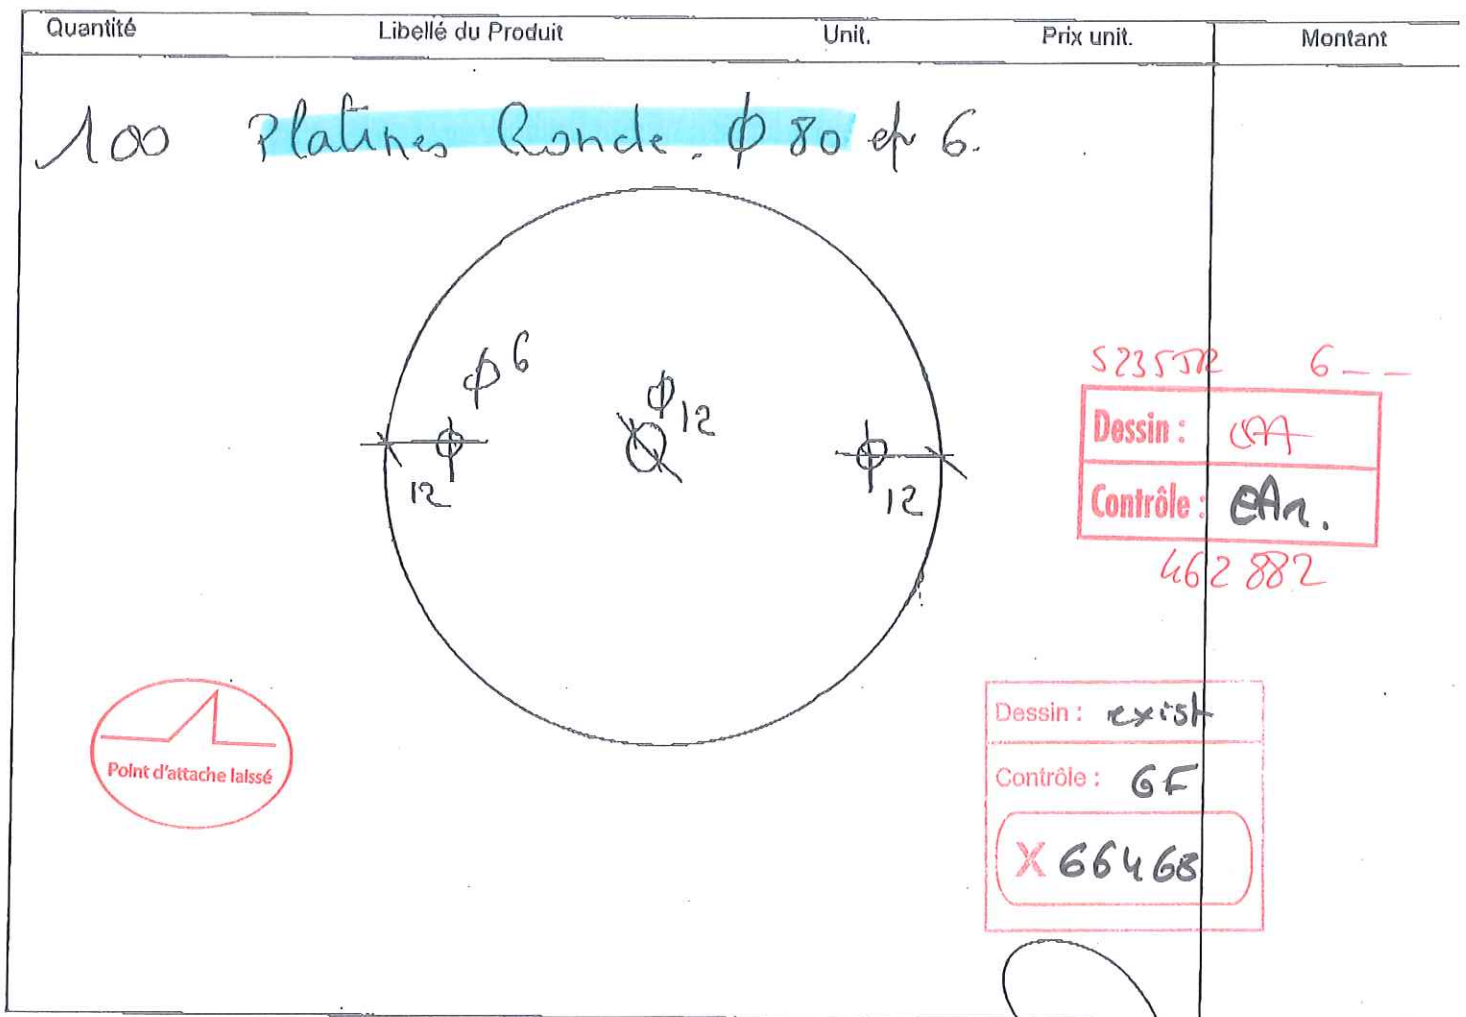 Quantité Libellé du Produit Unit. Prix unit. Montant
100 Platines Ronde. ϕ 80 ep 6.
ϕ 6
ϕ 12
12
12
S235JR 6 _ _
Dessin :
Contrôle :
462 882
Point d'attache laissé
Dessin : exist
Contrôle : GF
X 66468